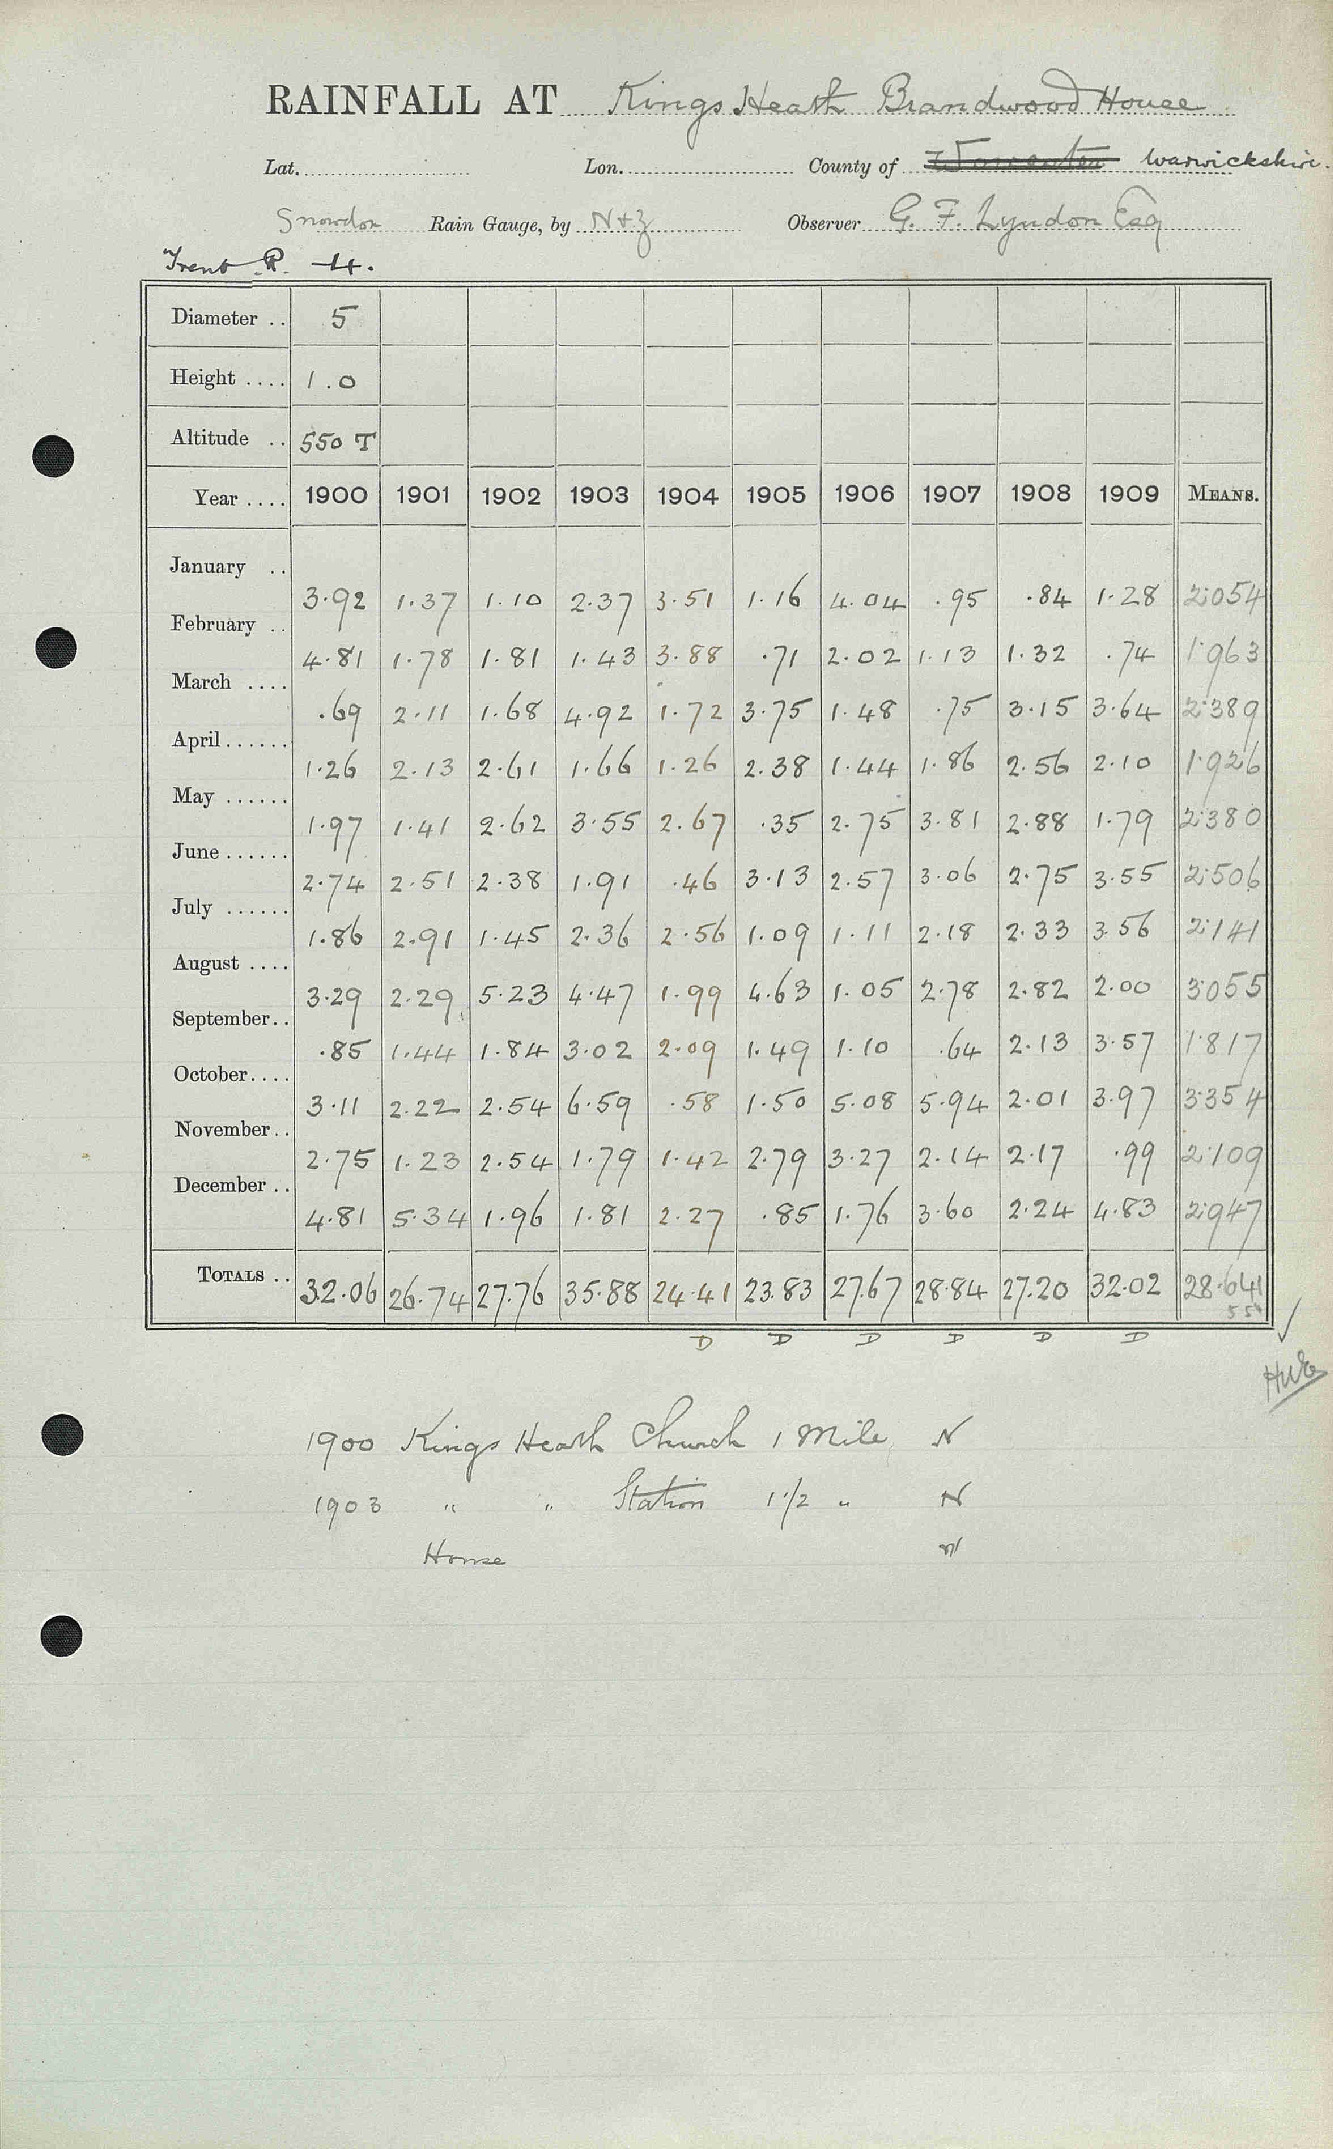 RAINFALL AT Kings Heath Brandwood House
Lat. Lon. County of Worcester Warwickshire.
Snowdon Rain Gauge, by N+Z Observer G. F. Lyndon Esq
Trent R. 4.
Diameter .. 5
Height .... 1.0
Altitude .. 550 T
Year .... 1900 1901 1902 1903 1904 1905 1906 1907 1908 1909 MEANS.
January .. 3.92 1.37 1.10 2.37 3.51 1.16 4.04 .95 .84 1.28 2.054
February .. 4.81 1.78 1.81 1.43 3.88 .71 2.02 1.13 1.32 .74 1.963
March .... .69 2.11 1.68 4.92 1.72 3.75 1.48 .75 3.15 3.64 2.389
April ...... 1.26 2.13 2.61 1.66 1.26 2.38 1.44 1.86 2.56 2.10 1.926
May ...... 1.97 1.41 2.62 3.55 2.67 .35 2.75 3.81 2.88 1.79 2.380
June ...... 2.74 2.51 2.38 1.91 .46 3.13 2.57 3.06 2.75 3.55 2.506
July ...... 1.86 2.91 1.45 2.36 2.56 1.09 1.11 2.18 2.33 3.56 2.141
August .... 3.29 2.29 5.23 4.47 1.99 4.63 1.05 2.78 2.82 2.00 3.055
September.. .85 1.44 1.84 3.02 2.09 1.49 1.10 .64 2.13 3.57 1.817
October.... 3.11 2.22 2.54 6.59 .58 1.50 5.08 5.94 2.01 3.97 3.354
November.. 2.75 1.23 2.54 1.79 1.42 2.79 3.27 2.14 2.17 .99 2.109
December .. 4.81 5.34 1.96 1.81 2.27 .85 1.76 3.60 2.24 4.83 2.947
TOTALS .. 32.06 26.74 27.76 35.88 24.41 23.83 27.67 28.84 27.20 32.02 28.641
D D D D D D
1900 Kings Heath Church 1 Mile N
1903 " " Station 1 1/2 " N
House N